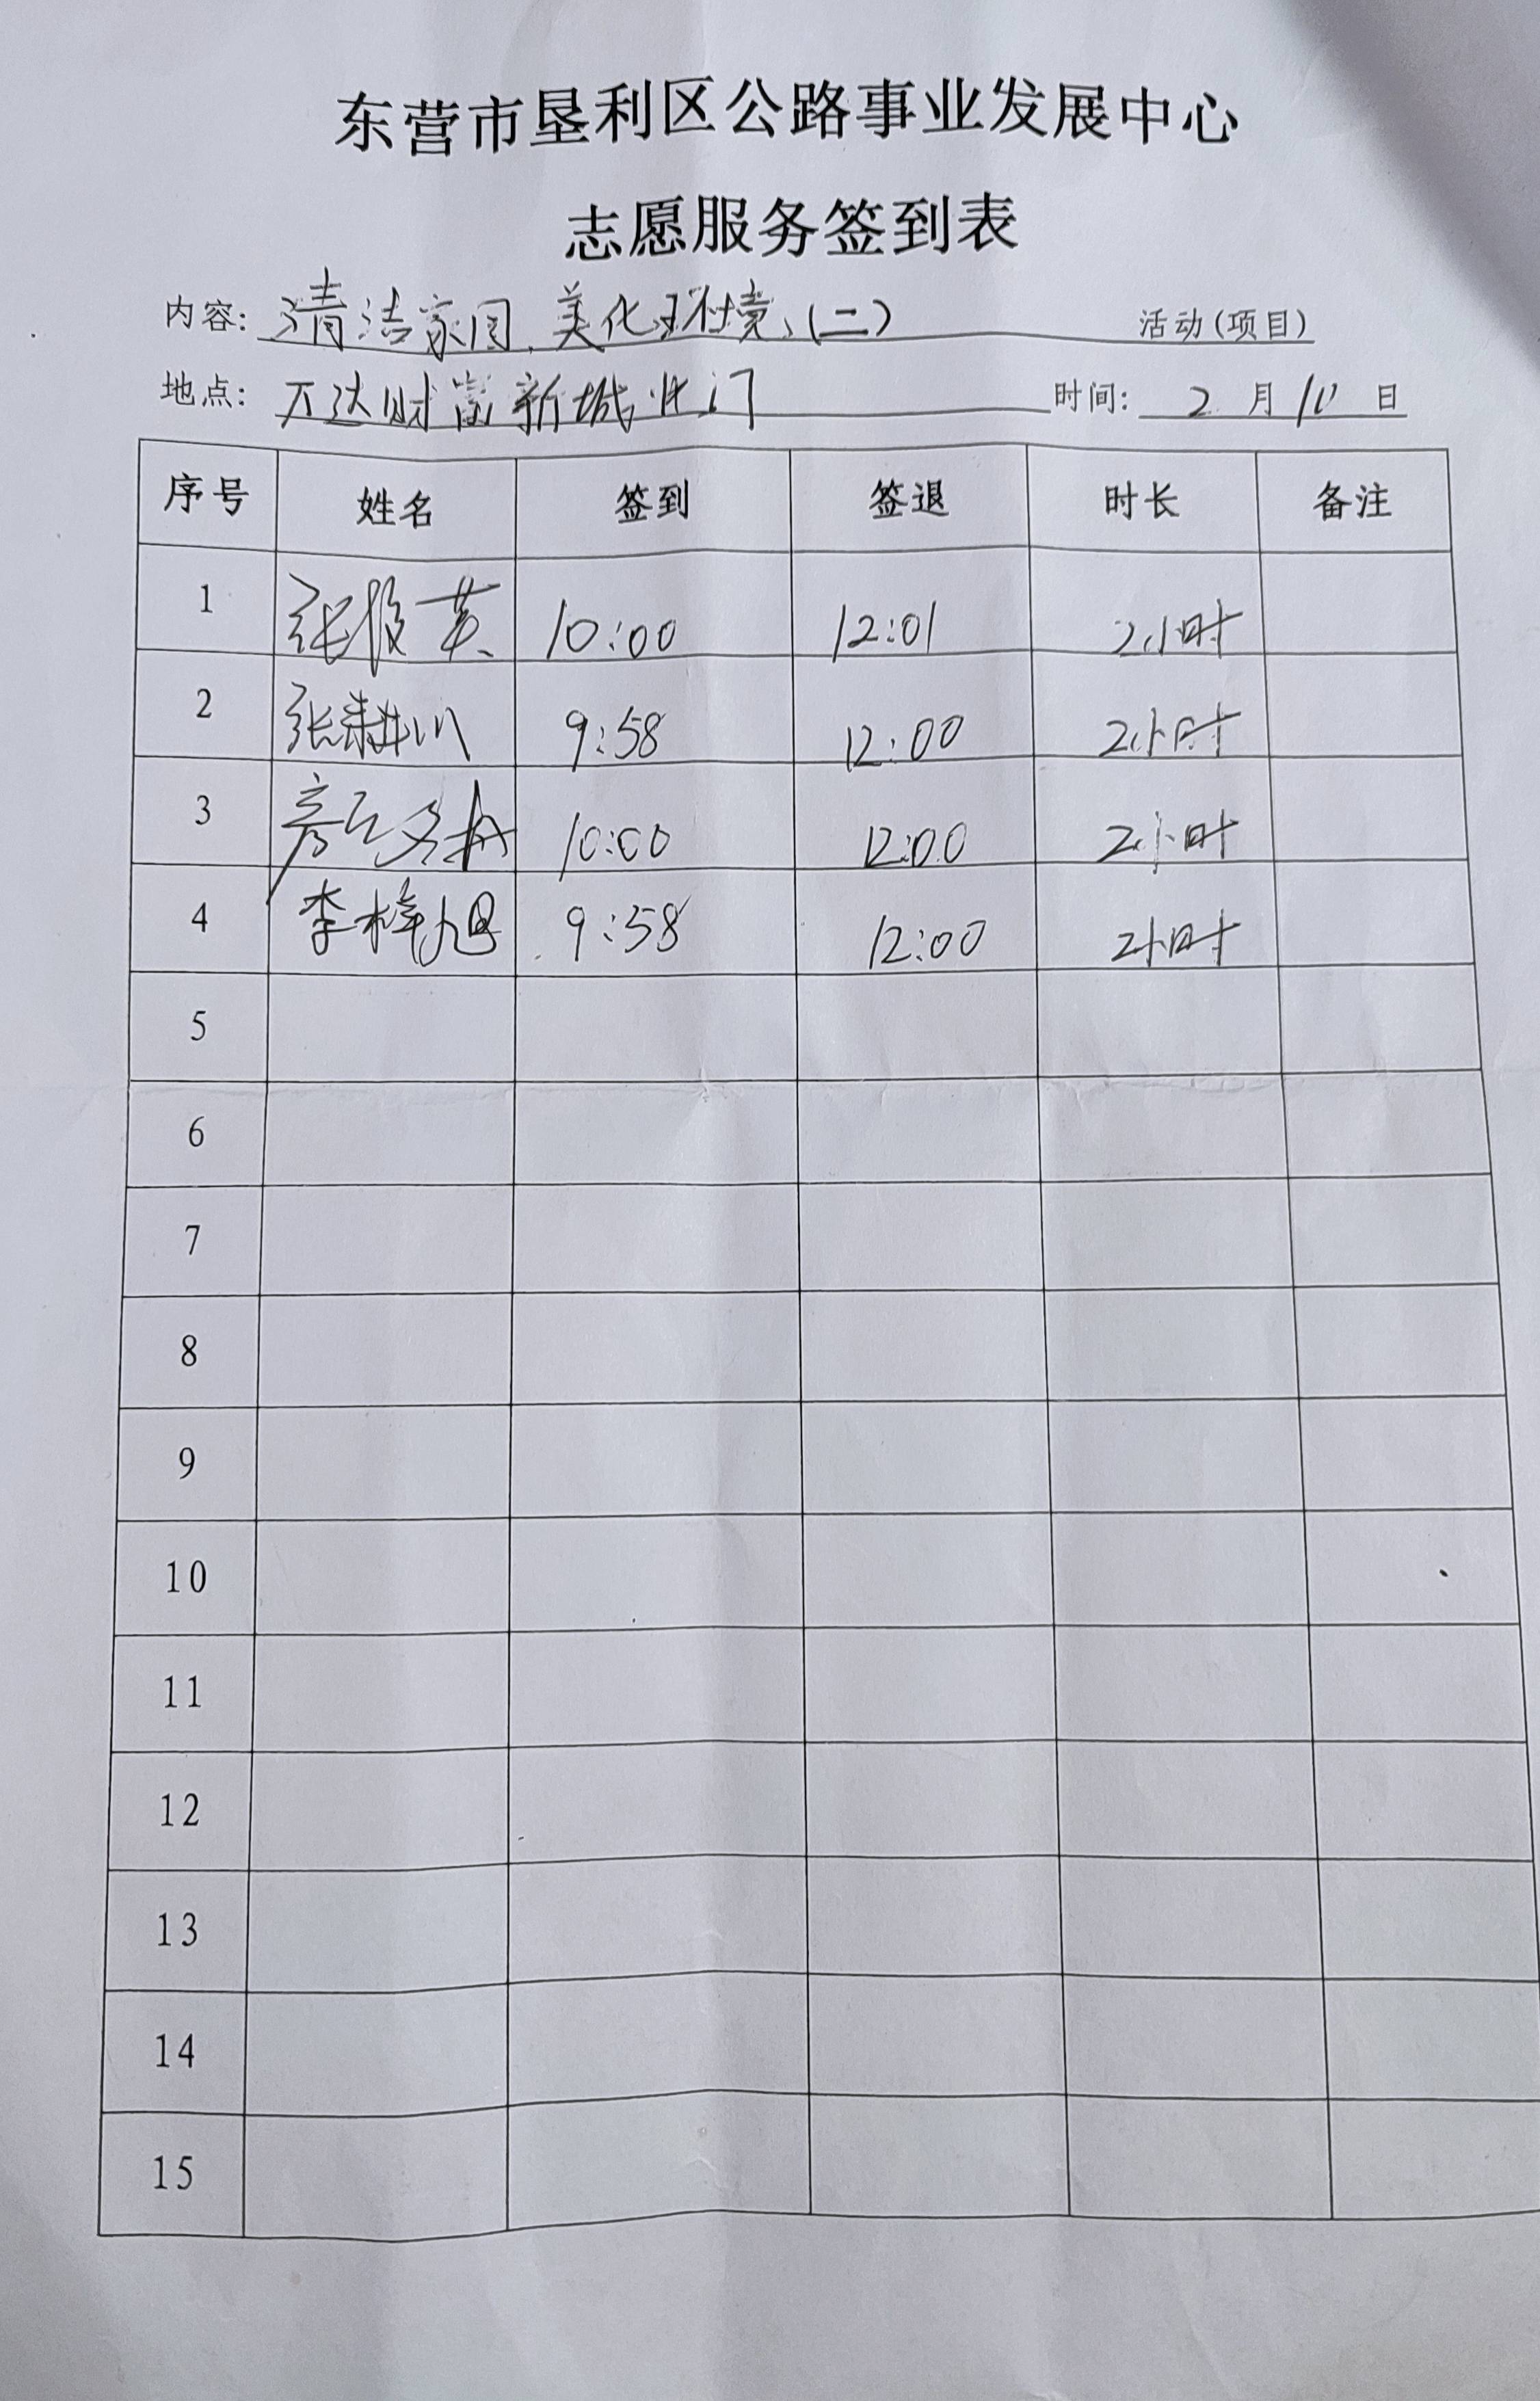 东营市垦利区公路事业发展中心
志愿服务签到表
内容: 清洁家园、美化环境、(二) 活动(项目)
地点: 万达财富新城北门 时间: 2 月 10 日
序号 姓名 签到 签退 时长 备注
1 张俊英 10:00 12:01 2小时
2 张耕川 9:58 12:00 2小时
3 10:00 12:00 2小时
4 李梓旭 9:58 12:00 2小时
5
6
7
8
9
10
11
12
13
14
15